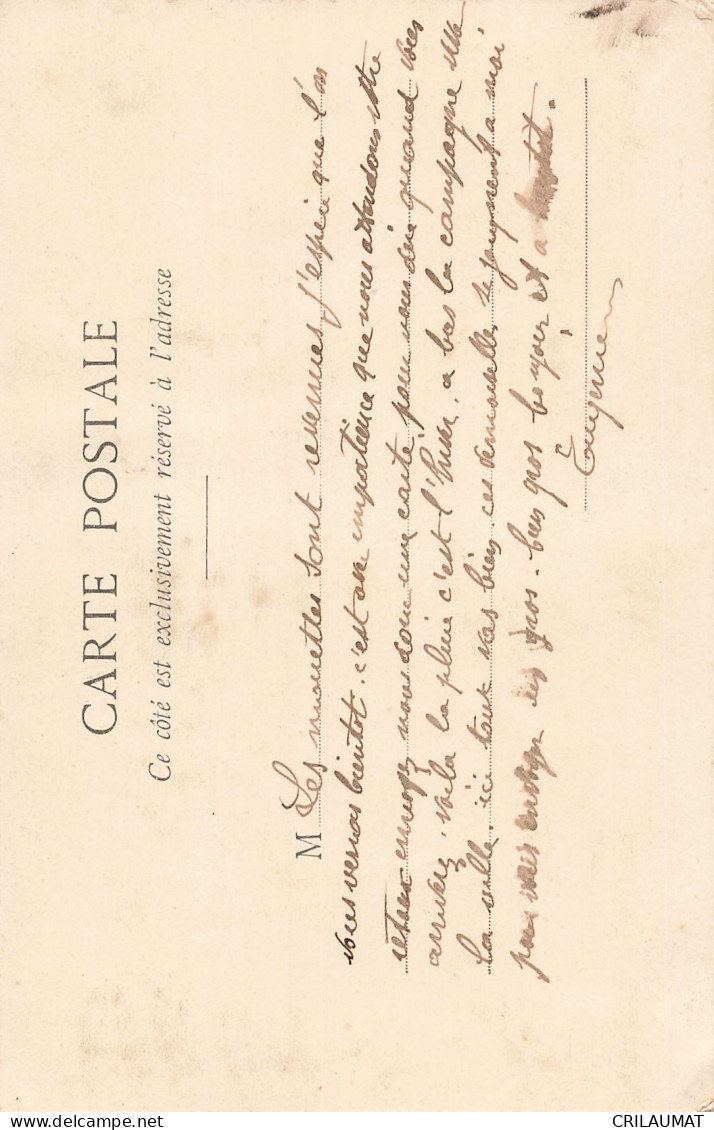 CARTE POSTALE
Ce côté est exclusivement réservé à l'adresse
M Les mouettes sont revenues j'espère que l'on
vous verras bientot. c'est avec impatience que nous attendons votre
retour envoyez nous donc une carte pour nous dire quand vous
arriverez. voila la pluie c'est l'hiver, a bas la campagne vive
la ville. ici tout vas bien. ces demoiselles se joignent a moi
pour vous envoyer des gros. bien gros bonjour et a
Eugénie
CRILAUMAT